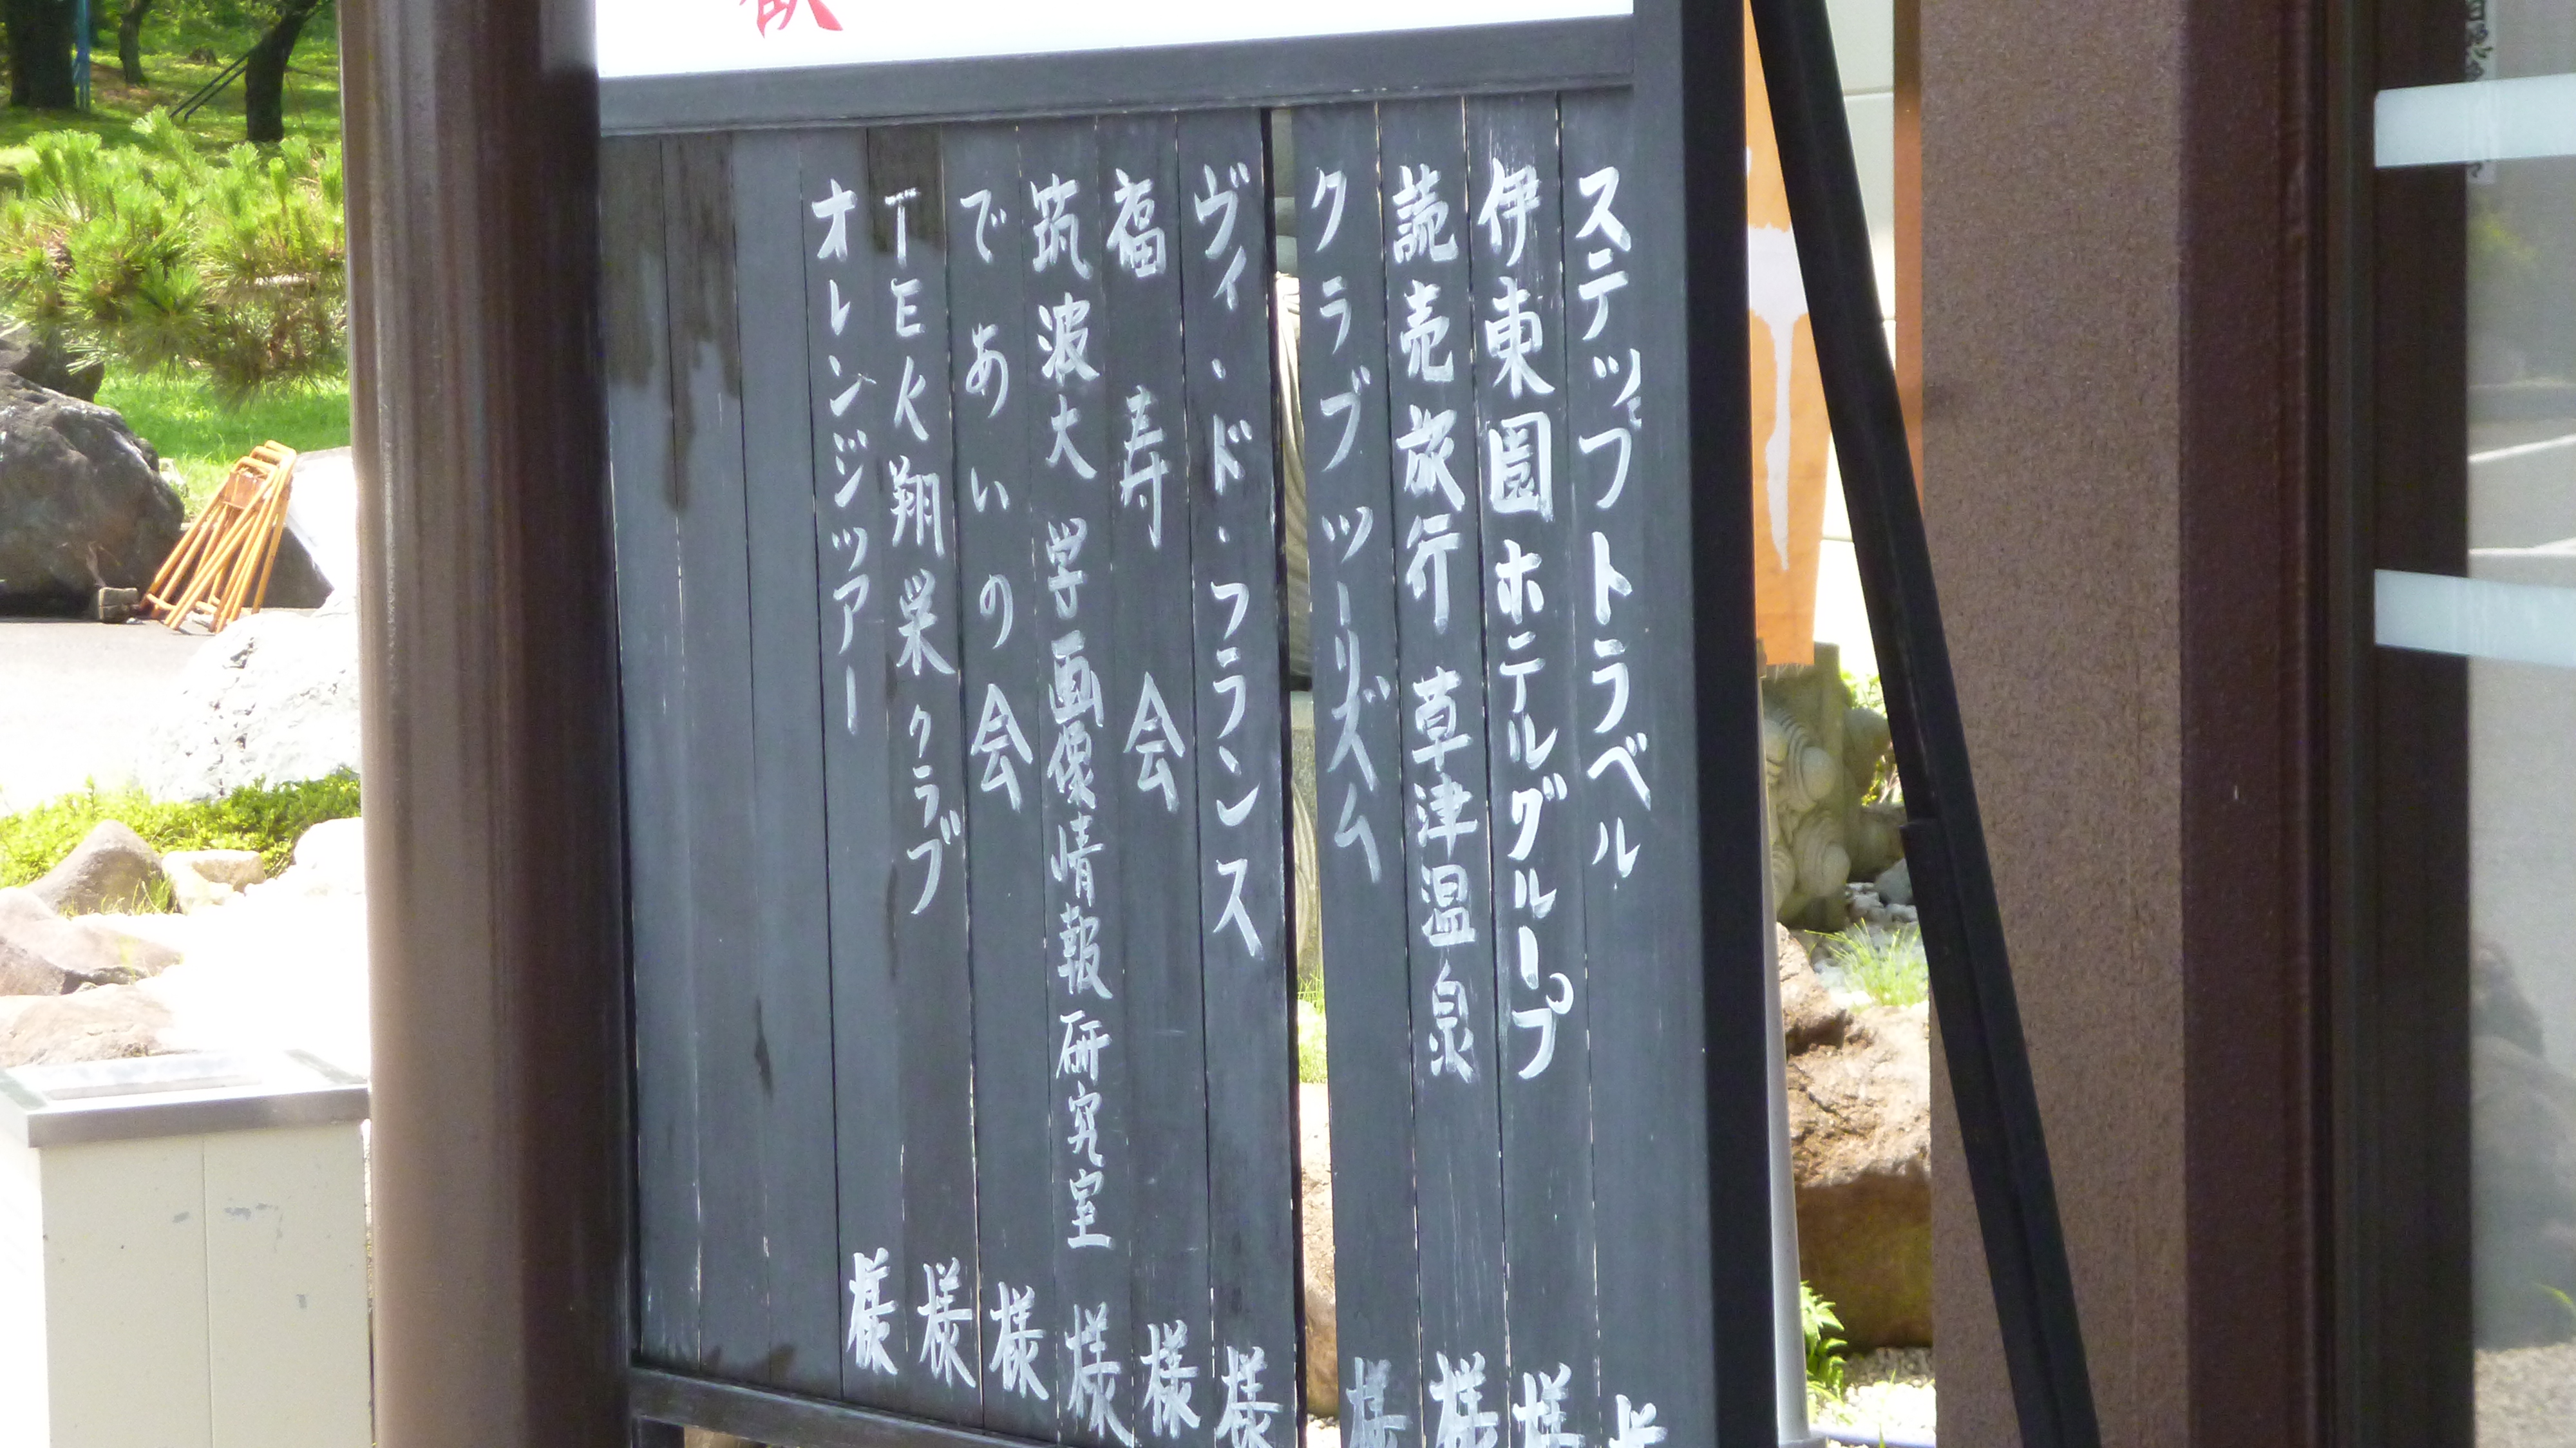 歓
ステップトラベル 様
伊東園ホテルグループ 様
読売旅行 草津温泉 様
クラブツーリズム 様
ヴィ・ド・フランス 様
福寿会 様
筑波大学画像情報研究室 様
であいの会 様
TEK翔栄クラブ 様
オレンジツアー 様